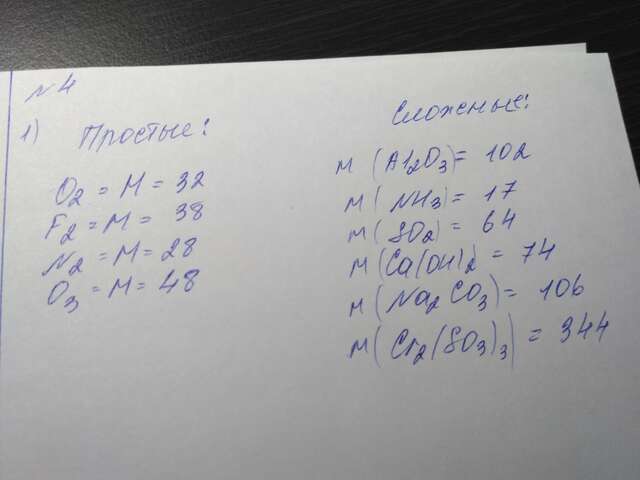 №4
1) Простые:
O2 = M = 32
F2 = M = 38
N2 = M = 28
O3 = M = 48
Сложные:
M (Al2O3) = 102
M (NH3) = 17
M (SO2) = 64
M (Ca(OH)2 = 74
M (Na2CO3) = 106
M (Cr2(SO3)3) = 344